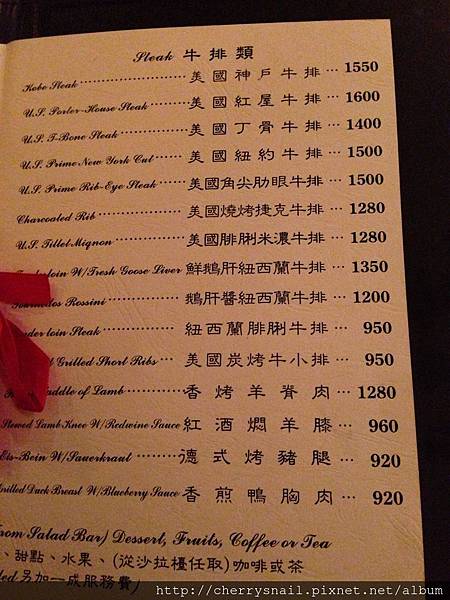 Steak 牛排類
Kobe Steak 美國神戶牛排 1550
U.S. Porter-House Steak 美國紅屋牛排 1600
U.S. T-Bone Steak 美國丁骨牛排 1400
U.S. Prime New York Cut 美國紐約牛排 1500
U.S. Prime Rib-Eye Steak 美國角尖肋眼牛排 1500
Charcoaled Rib 美國燒烤捷克牛排 1280
U.S. Tillel-Mignon 美國腓脷米濃牛排 1280
W/Tresh Goose Liver 鮮鵝肝紐西蘭牛排 1350
Tournedos Rossini 鵝肝醬紐西蘭牛排 1200
loin Steak 紐西蘭腓脷牛排 950
Grilled Short Ribs 美國炭烤牛小排 950
of Lamb 香烤羊脊肉 1280
Stewed Lamb Knee W/Redwine Sauce 紅酒燜羊膝 960
Eis-Bein W/Sauerkraut 德式烤豬腿 920
Grilled Duck Breast W/Blueberry Sauce 香煎鴨胸肉 920
from Salad Bar) Dessert, Fruits, Coffee or Tea
、甜點、水果、(從沙拉檯任取)咖啡或茶
另加一成服務費)
http://cherrysnail.pixnet.net/album